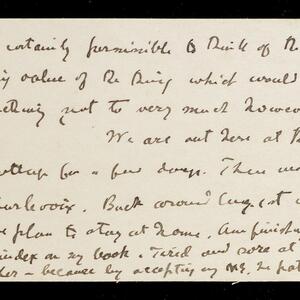 certainly permissible to think of the
value of the thing which would
not to very much however
We are out here at
for a few days. Then
Back around Aug 1st
plan to stay at home. Am finish
index on my book. Tired and sore at
because by accepting my MS. he